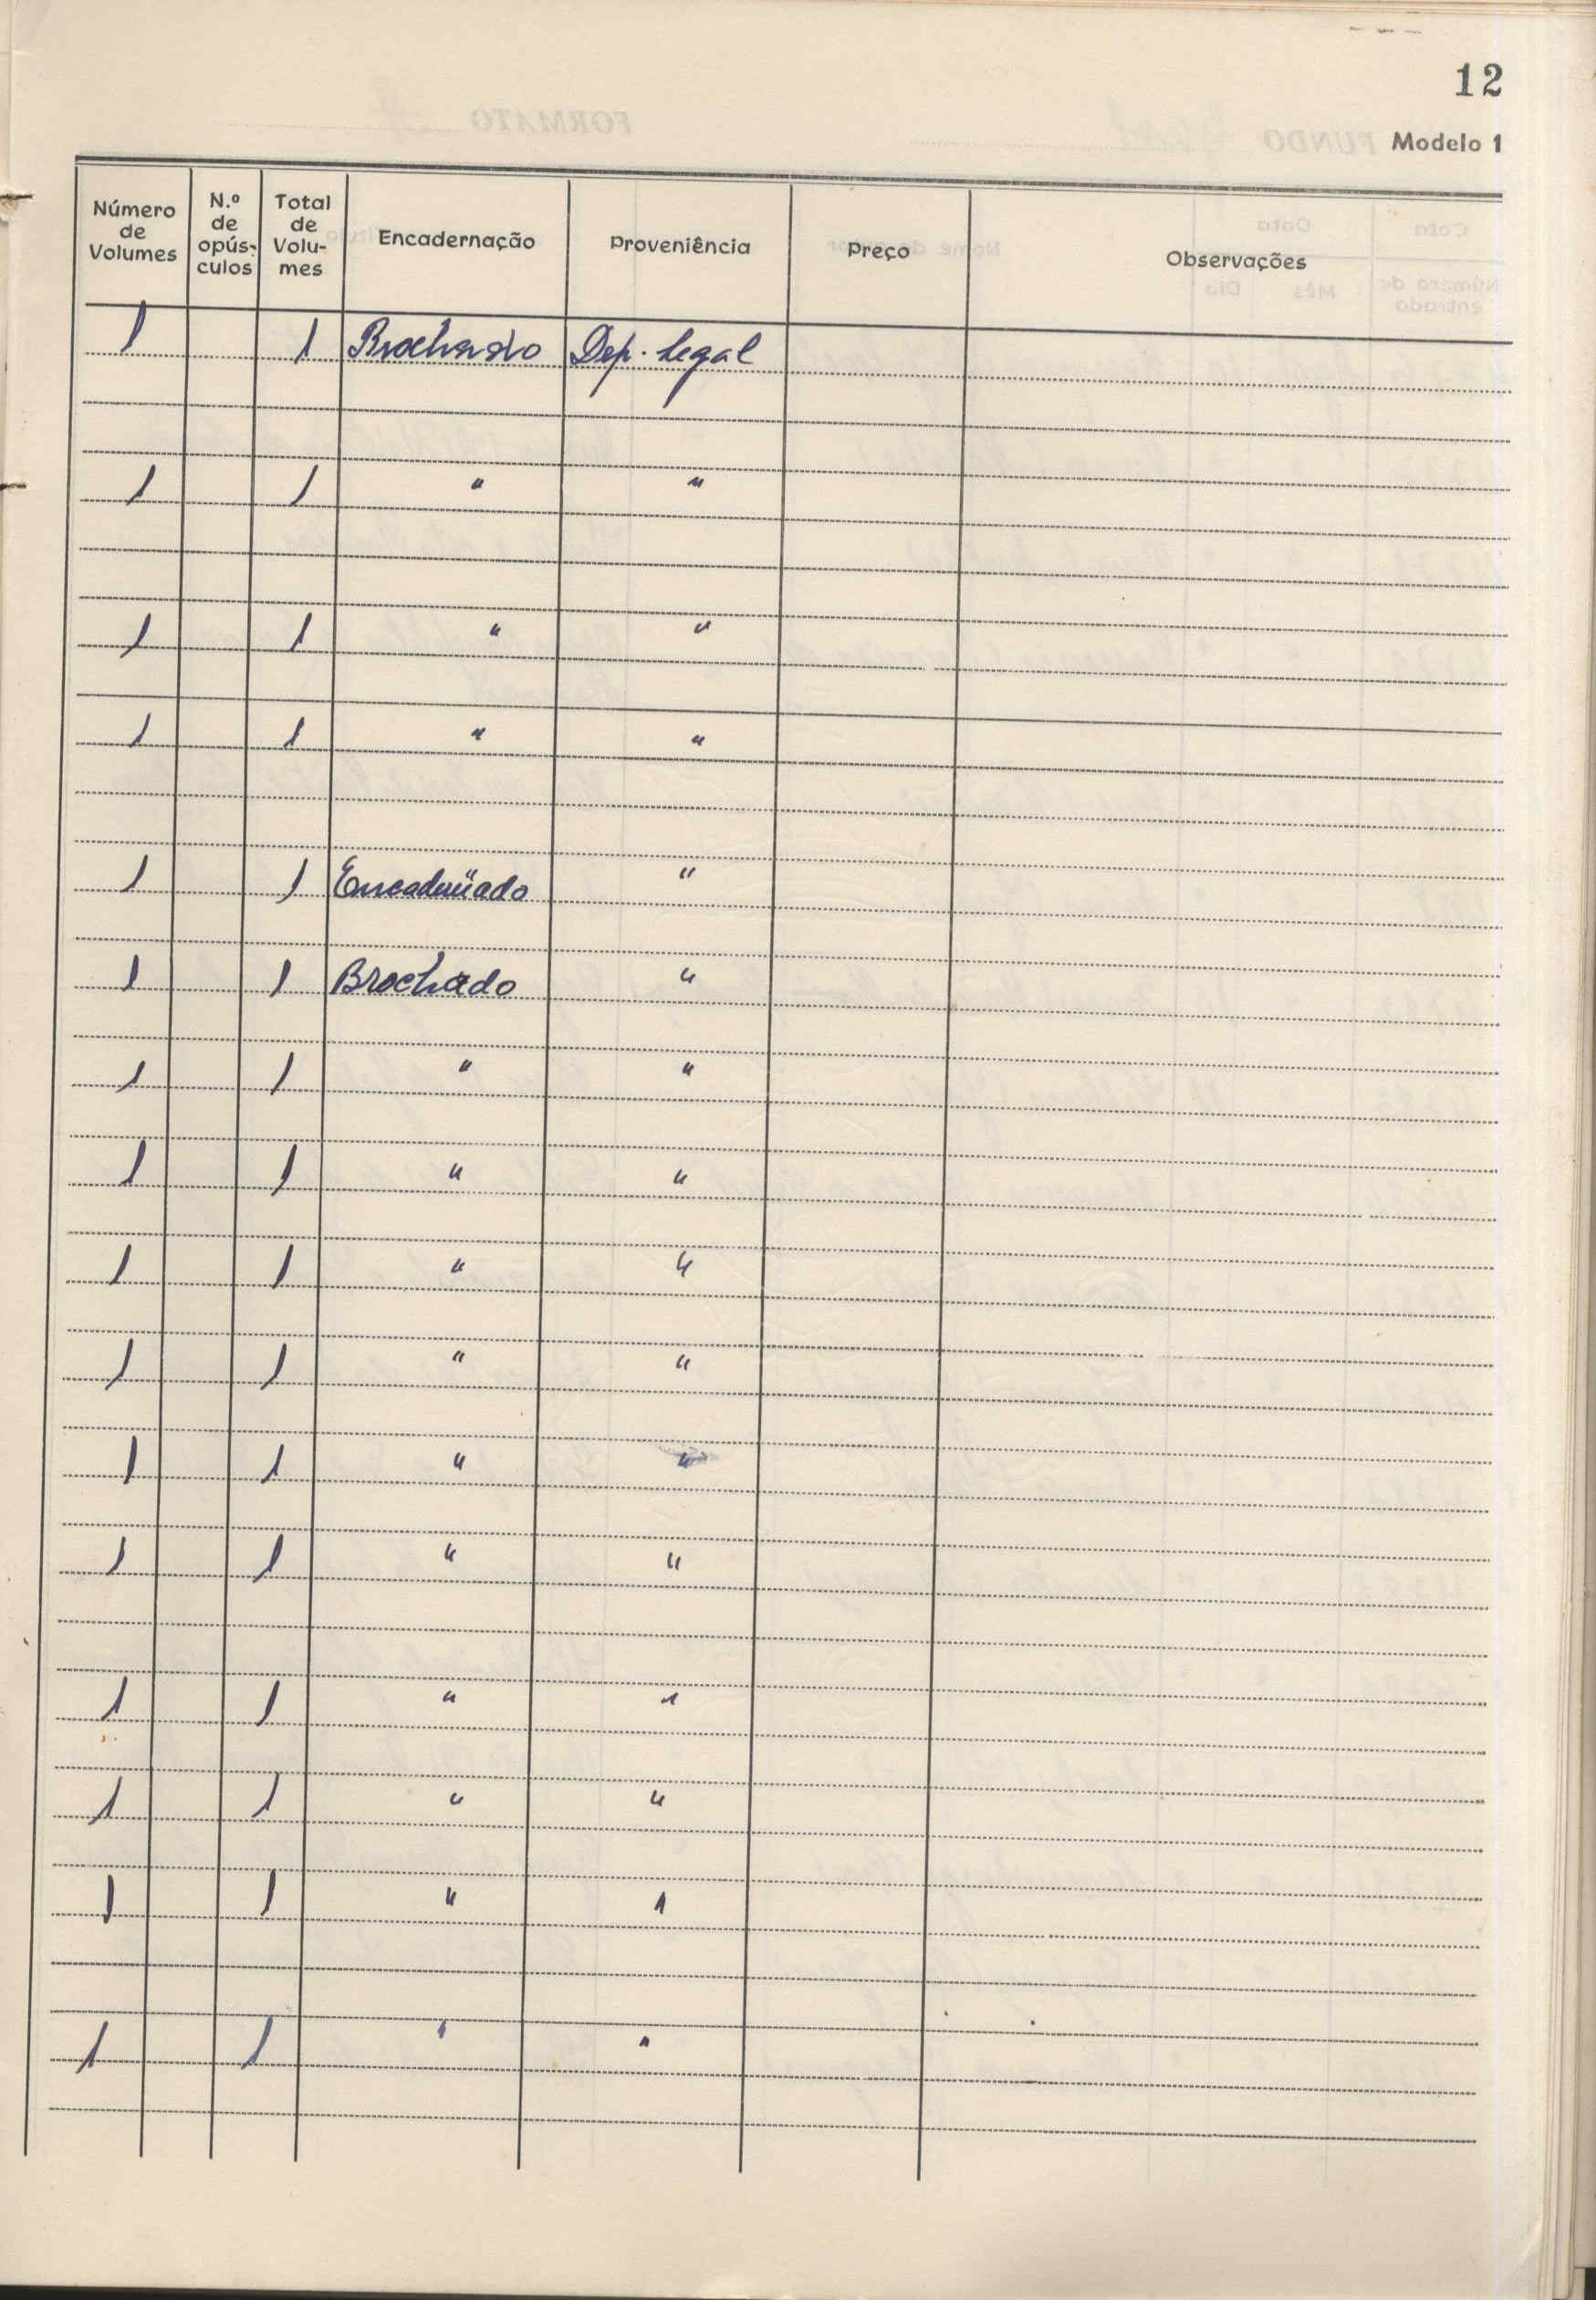 12
Modelo 1
Número de Volumes | N.º de opús-culos | Total de Volu-mes | Encadernação | Proveniência | Preço | Observações
1 1 Brochado Dep. legal
1 1 " "
1 1 " "
1 1 " "
1 1 Encadernado "
1 1 Brochado "
1 1 " "
1 1 " "
1 1 " "
1 1 " "
1 1 " "
1 1 " "
1 1 " "
1 1 " "
1 1 " "
1 1 " "